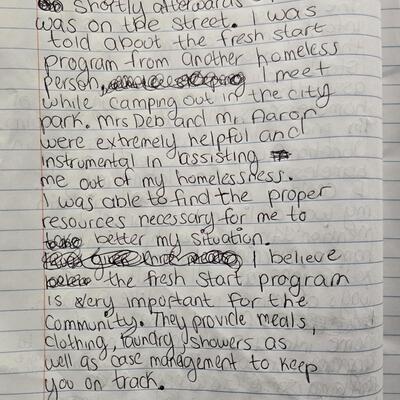 Shortly afterwards I
was on the street. I was
told about the fresh start
program from another homeless
person, I meet
while camping out in the city
park. Mrs Deb and Mr. Aaron
were extremely helpful and
instrumental in assisting
me out of my homelessness.
I was able to find the proper
resources necessary for me to
better my situation.
I believe
the fresh start program
is very important for the
community. They provide meals,
clothing, laundry, showers as
well as case management to keep
you on track.